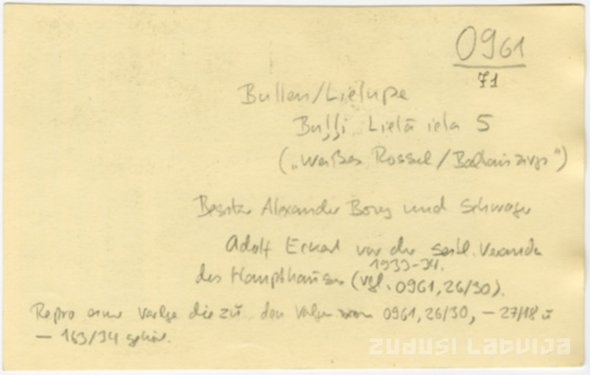 0961
71
Bullen/Lielupe
Buļļi Lielā iela 5
("Weißes Rossel/Baltais zirgs")
Besitzer Alexander Borg und Schwager
Adolf Eckert vor der seitl. Veranda
1933-34.
des Haupthauses (vgl. 0961,26/30).
Repro einer Vorlage die zu den Vorlagen von 0961,26/30, – 27/18 u
– 163/34 gehört.
ZUDUSI LATVIJA